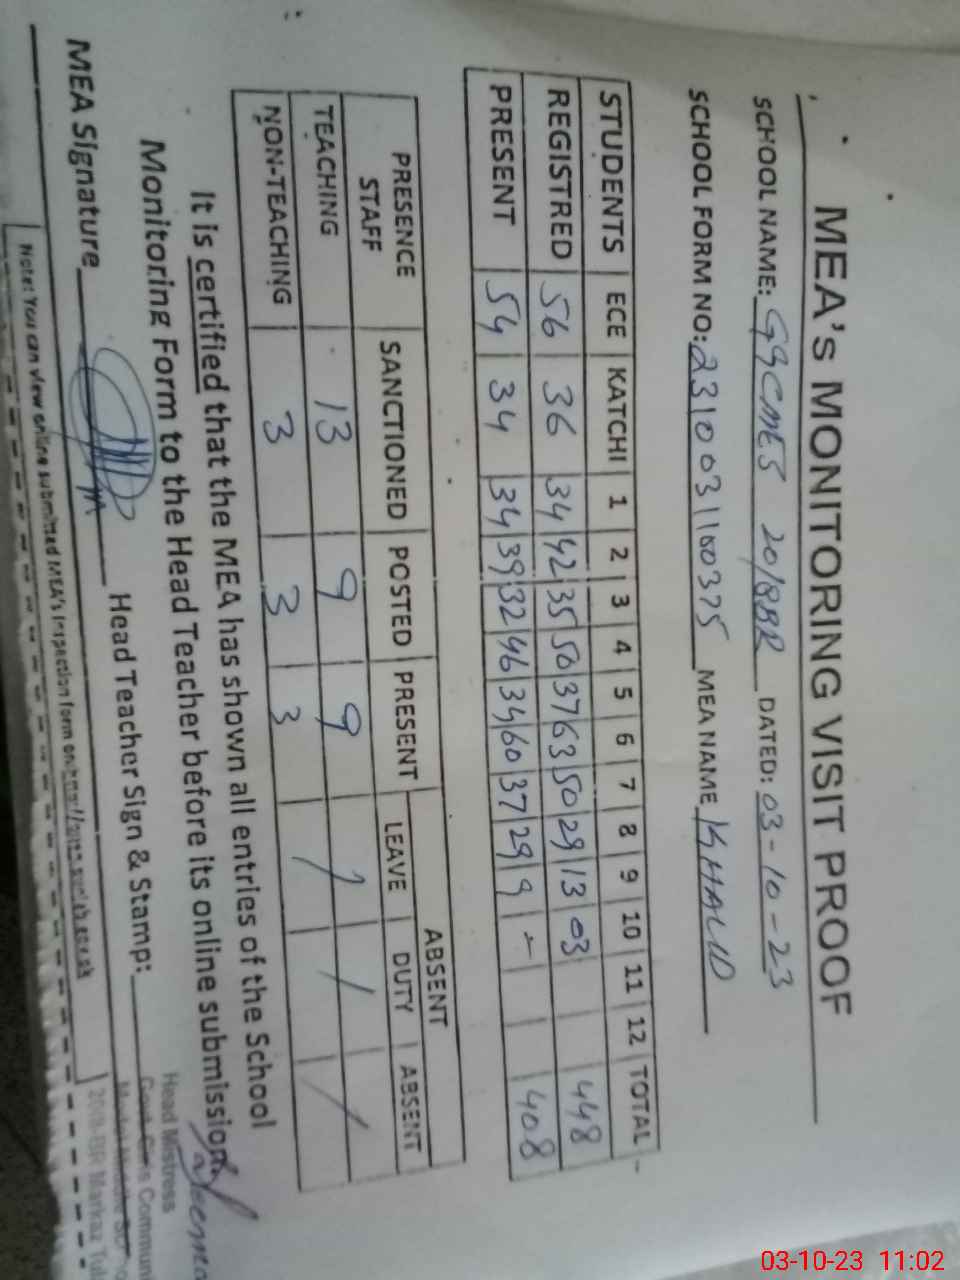 MEA's MONITORING VISIT PROOF
SCHOOL NAME: GGCMES 20/8BR DATED: 03-10-23
SCHOOL FORM NO: 2310031100375 MEA NAME KHALID
STUDENTS ECE KATCHI 1 2 3 4 5 6 7 8 9 10 11 12 TOTAL
REGISTRED 56 36 34 42 35 50 37 63 50 29 13 03 448
PRESENT 54 34 34 39 32 46 34 60 37 29 9 - 408
PRESENCE STAFF SANCTIONED POSTED PRESENT ABSENT
LEAVE DUTY ABSENT
TEACHING 13 9 9 / / /
NON-TEACHING 3 3 3 /
It is certified that the MEA has shown all entries of the School
Monitoring Form to the Head Teacher before its online submission.
MEA Signature Head Teacher Sign & Stamp:
Head Mistress
Govt. Girls Commun
Middle
Markaz
Note: You can view online submitted MEA's Inspection form on
03-10-23 11:02